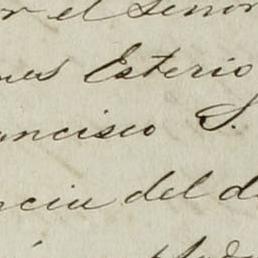 or el Señor
nes Esterio
ancisco S.
ncia del d